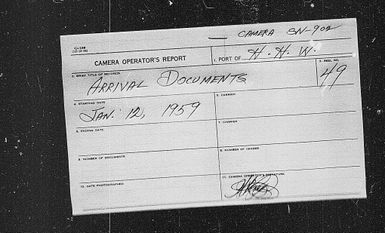 CAMERA SN-902
G-188
CAMERA OPERATOR'S REPORT
1. PORT OF H. H. W.
2. BRIEF TITLE OF RECORDS
ARRIVAL DOCUMENTS
3. REEL NO.
49
4. STARTING DATE
JAN. 12, 1959
5. CARRIER
6. ENDING DATE
8. NUMBER OF DOCUMENTS
10. DATE PHOTOGRAPHED
11. CAMERA OPERATOR'S SIGNATURE